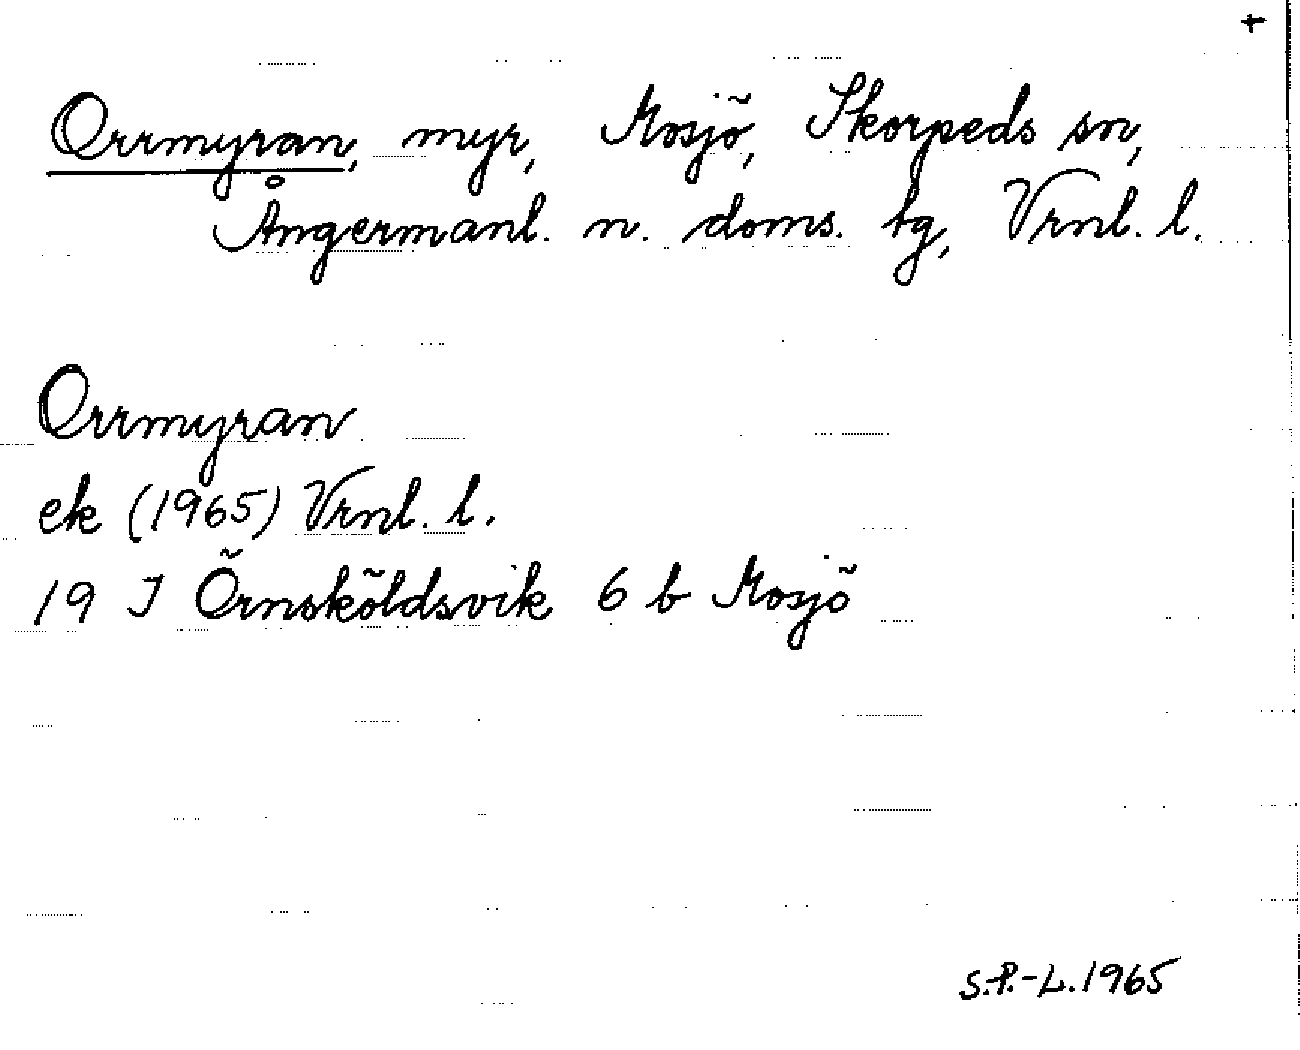 +
Orrmyran, myr, Mosjö, Skorpeds sn,
Ångermanl. n. doms. tg, Vrnl. l.
Orrmyran
ek (1965) Vrnl. l.
19 J Örnsköldsvik 6 b Mosjö
S.P.-L. 1965